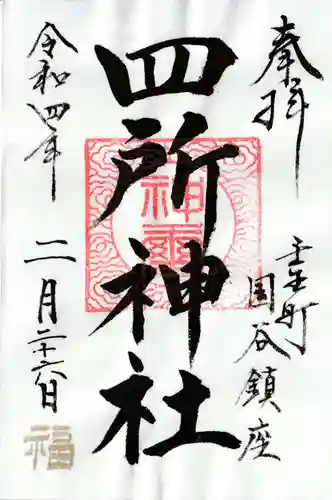 奉拝
壬生町
国谷鎮座
四所神社
令和四年
二月二十六日
福